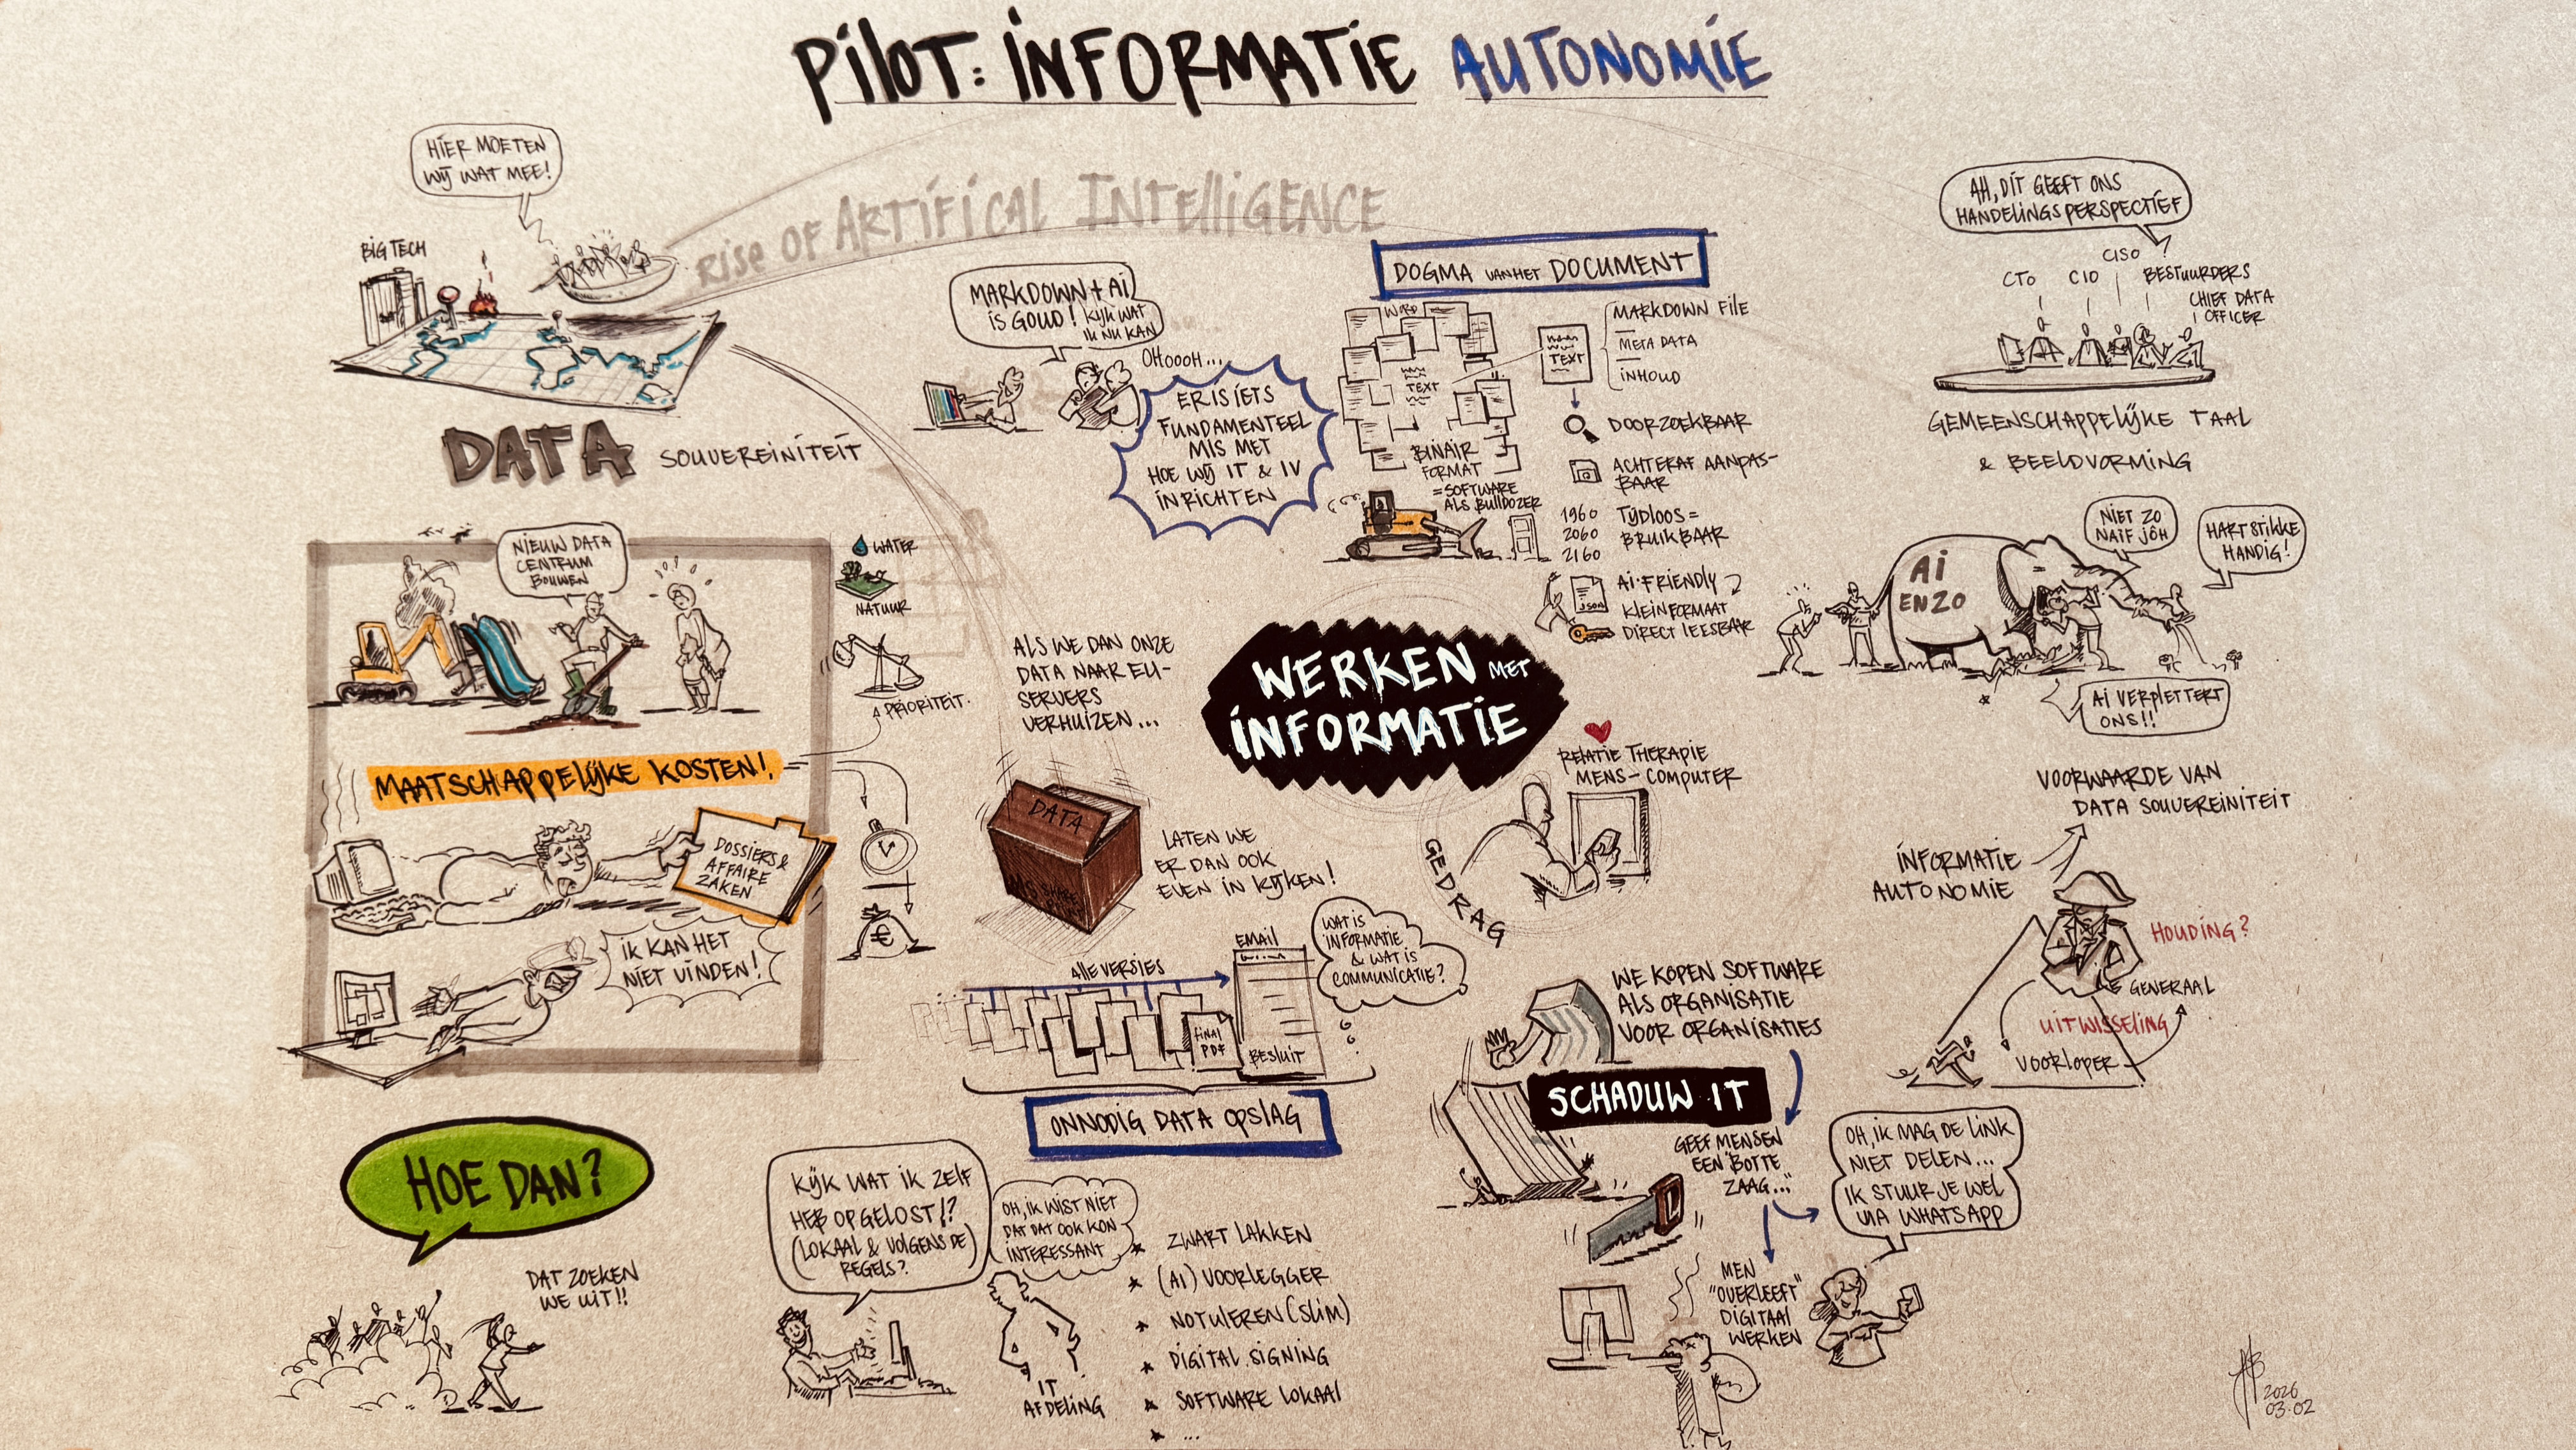 PILOT: INFORMATIE AUTONOMIE
HIER MOETEN
WIJ WAT MEE!
BIG TECH
RISE OF ARTIFICAL INTELLIGENCE
DATA SOUVEREINITEIT
MARKDOWN + AI
IS GOUD! KIJK WAT
IK NU KAN
OHOOOH...
ER IS IETS
FUNDAMENTEEL
MIS MET
HOE WIJ IT & IV
INRICHTEN
DOGMA VAN HET DOCUMENT
WORD
TEXT
BINAIR
FORMAT
= SOFTWARE
ALS BULLDOZER
TEXT
MARKDOWN FILE
META DATA
INHOUD
DOORZOEKBAAR
ACHTERAF AANPAS-
BAAR
1960
2060
2160
TIJDLOOS =
BRUIKBAAR
JSON
AI-FRIENDLY
KLEIN FORMAAT
DIRECT LEESBAAR
AH, DIT GEEFT ONS
HANDELINGSPERSPECTIEF
CTO
CIO
CISO
BESTUURDERS
CHIEF DATA
OFFICER
GEMEENSCHAPPELIJKE TAAL
& BEELDVORMING
NIET ZO
NAIF JÔH
HARTSTIKKE
HANDIG!
AI
ENZO
AI VERPLETTERT
ONS!!
NIEUW DATA
CENTRUM
BOUWEN
WATER
NATUUR
PRIORITEIT.
MAATSCHAPPELIJKE KOSTEN!
DOSSIERS &
AFFAIRE
ZAKEN
IK KAN HET
NIET VINDEN!
€
ALS WE DAN ONZE
DATA NAAR EU-
SERVERS
VERHUIZEN...
DATA
MS SHARE
POINT
LATEN WE
ER DAN OOK
EVEN IN KIJKEN!
WERKEN MET
INFORMATIE
RELATIE THERAPIE
MENS-COMPUTER
GEDRAG
ALLE VERSIES
FINAL
PDF
EMAIL
BESLUIT
WAT IS
INFORMATIE
& WAT IS
COMMUNICATIE?
ONNODIG DATA OPSLAG
WE KOPEN SOFTWARE
ALS ORGANISATIE
VOOR ORGANISATIES
SCHADUW IT
GEEF MENSEN
EEN "BOTTE
ZAAG..."
MEN
"OVERLEEFT"
DIGITAAL
WERKEN
OH, IK MAG DE LINK
NIET DELEN...
IK STUUR JE WEL
VIA WHATSAPP
VOORWAARDE VAN
DATA SOUVEREINITEIT
INFORMATIE
AUTONOMIE
HOUDING?
GENERAAL
UITWISSELING
VOORLOPER
HOE DAN?
DAT ZOEKEN
WE UIT!!
KIJK WAT IK ZELF
HEB OPGELOST!?
(LOKAAL & VOLGENS DE
REGELS?
OH, IK WIST NIET
DAT DAT OOK KON
INTERESSANT
IT
AFDELING
* ZWART LAKKEN
* (AI) VOORLEGGER
* NOTULEREN (SLIM)
* DIGITAL SIGNING
* SOFTWARE LOKAAL
* ...
2026
03.02